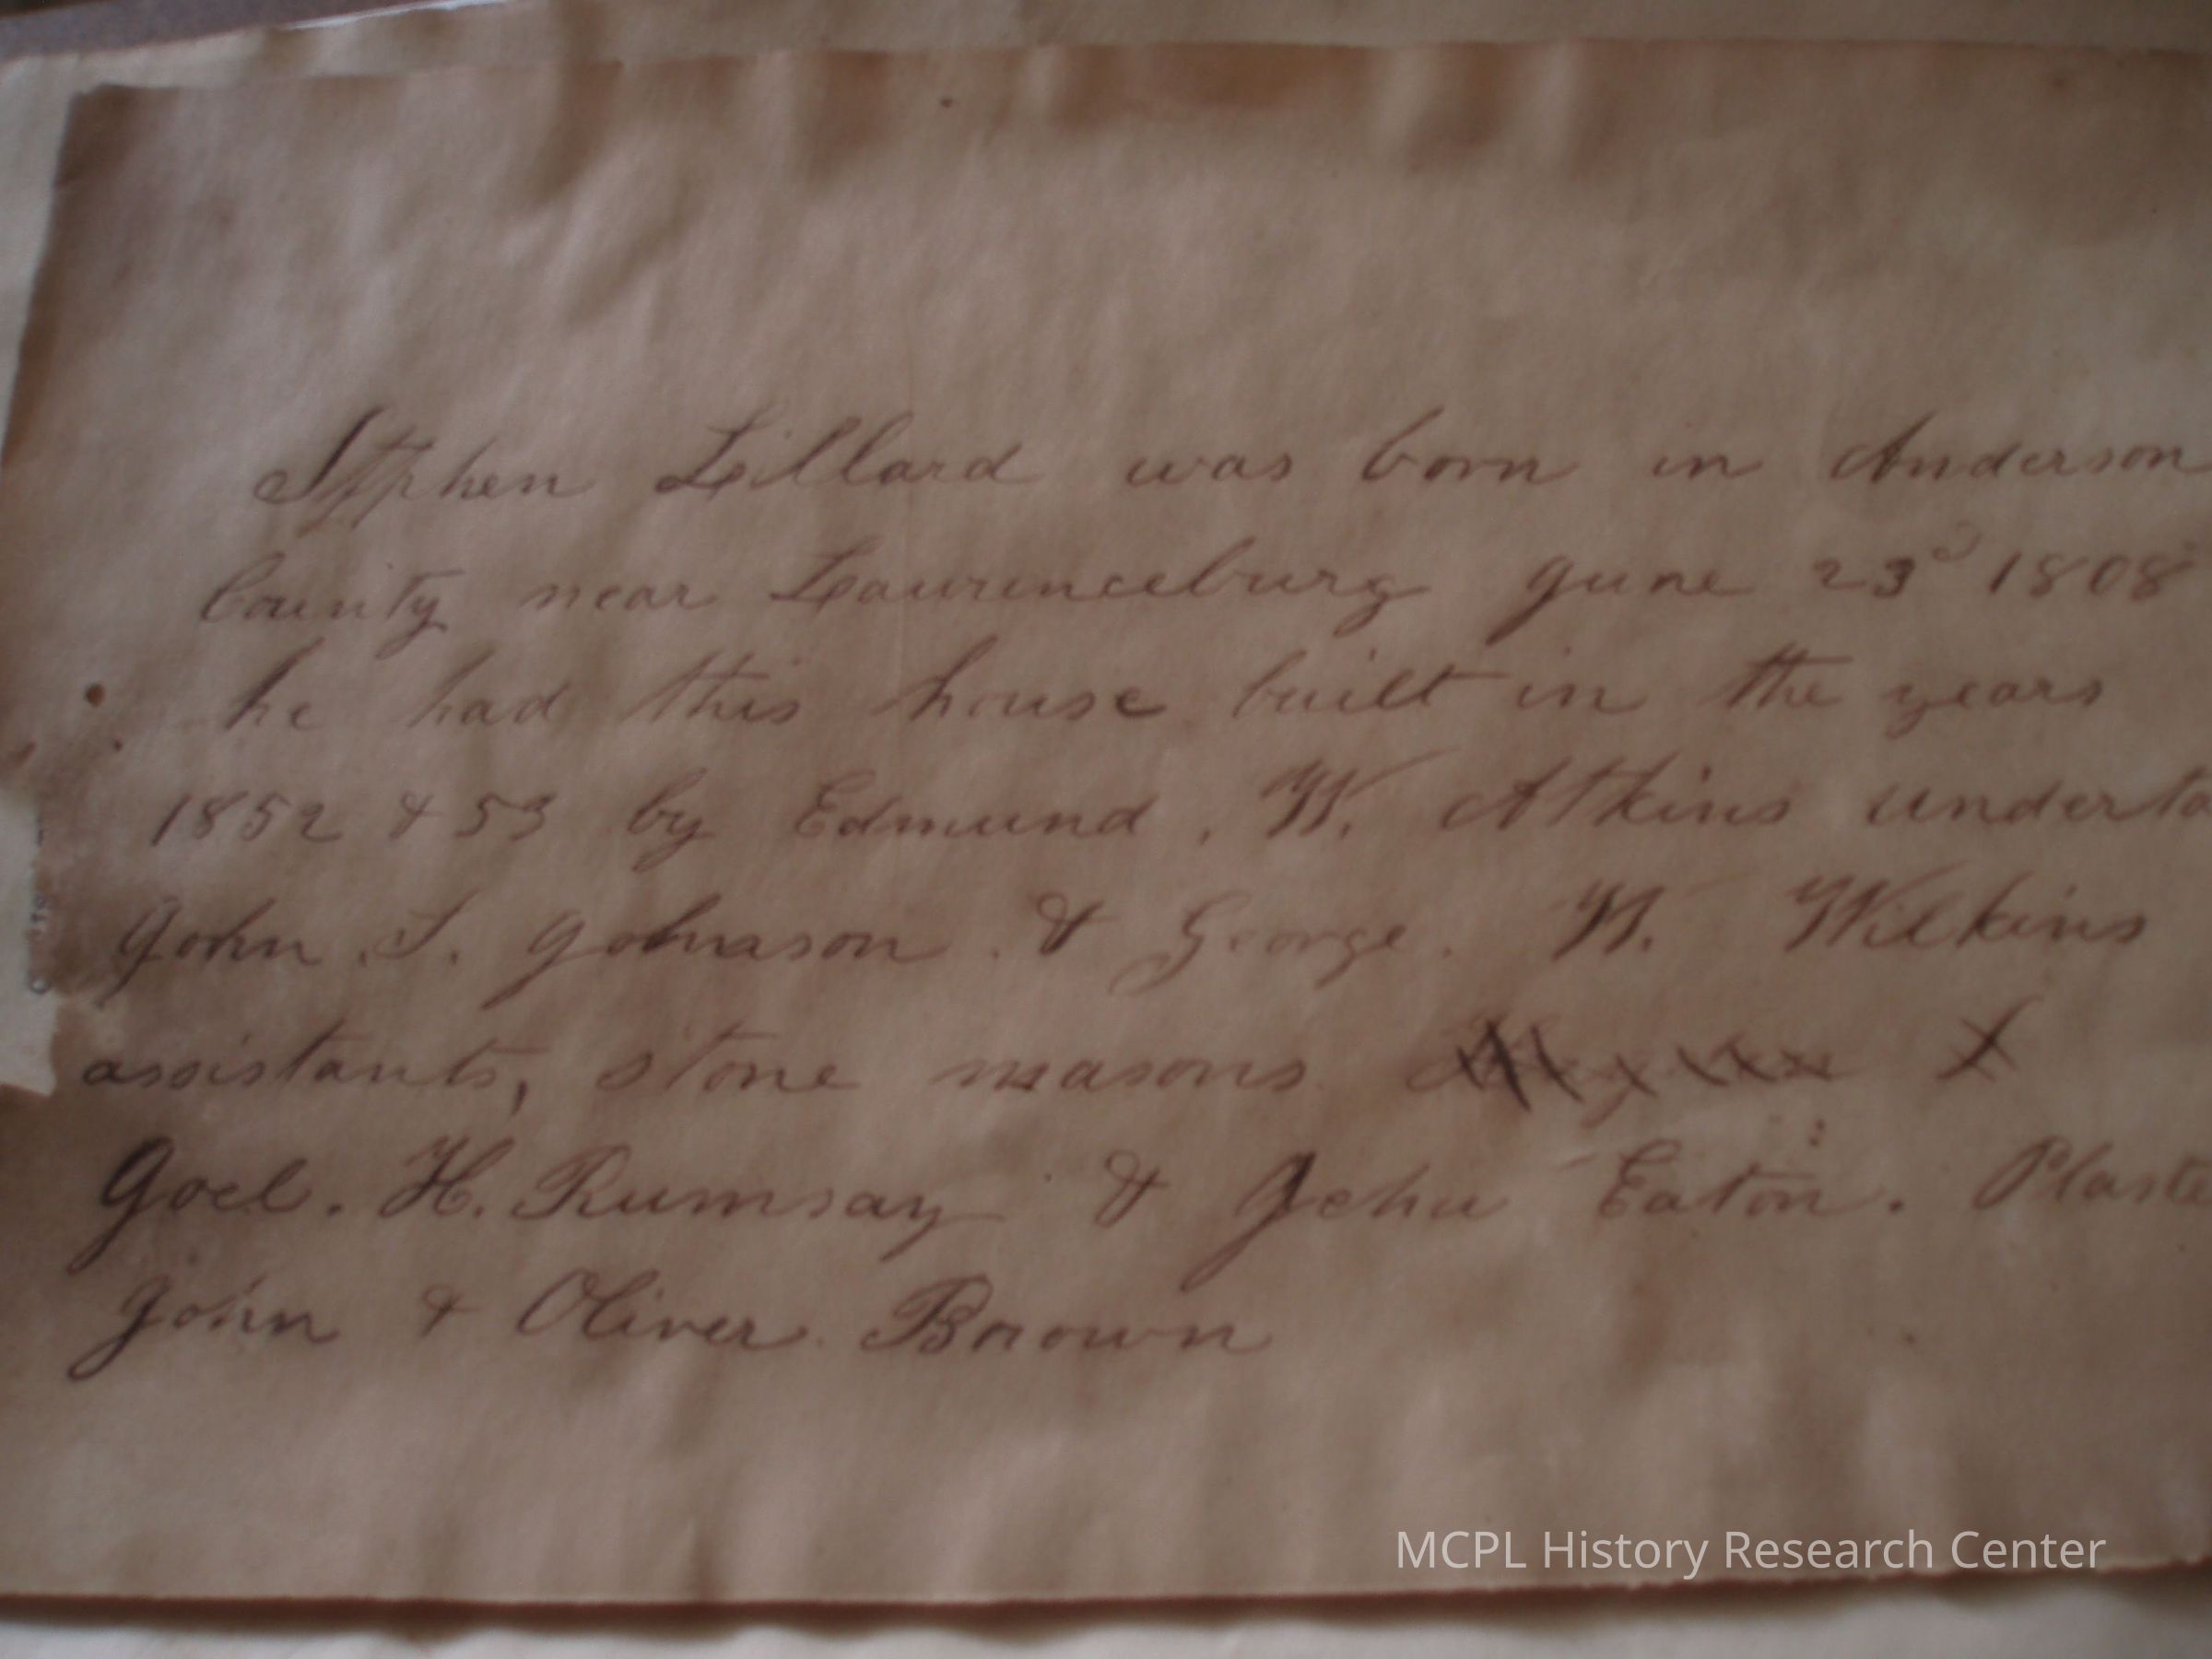 Stphen Lillard was born in Anderson
County near Laurenceburg June 23d 1808
he had this house built in the years
1852 & 53 by Edmund. W. Atkins underta
John. S. Johnason. & George. W. Wilkins
assistants, stone masons
Joel. H. Rumsay & Jehu Eaton. Plaste
John & Oliver Brown
MCPL History Research Center